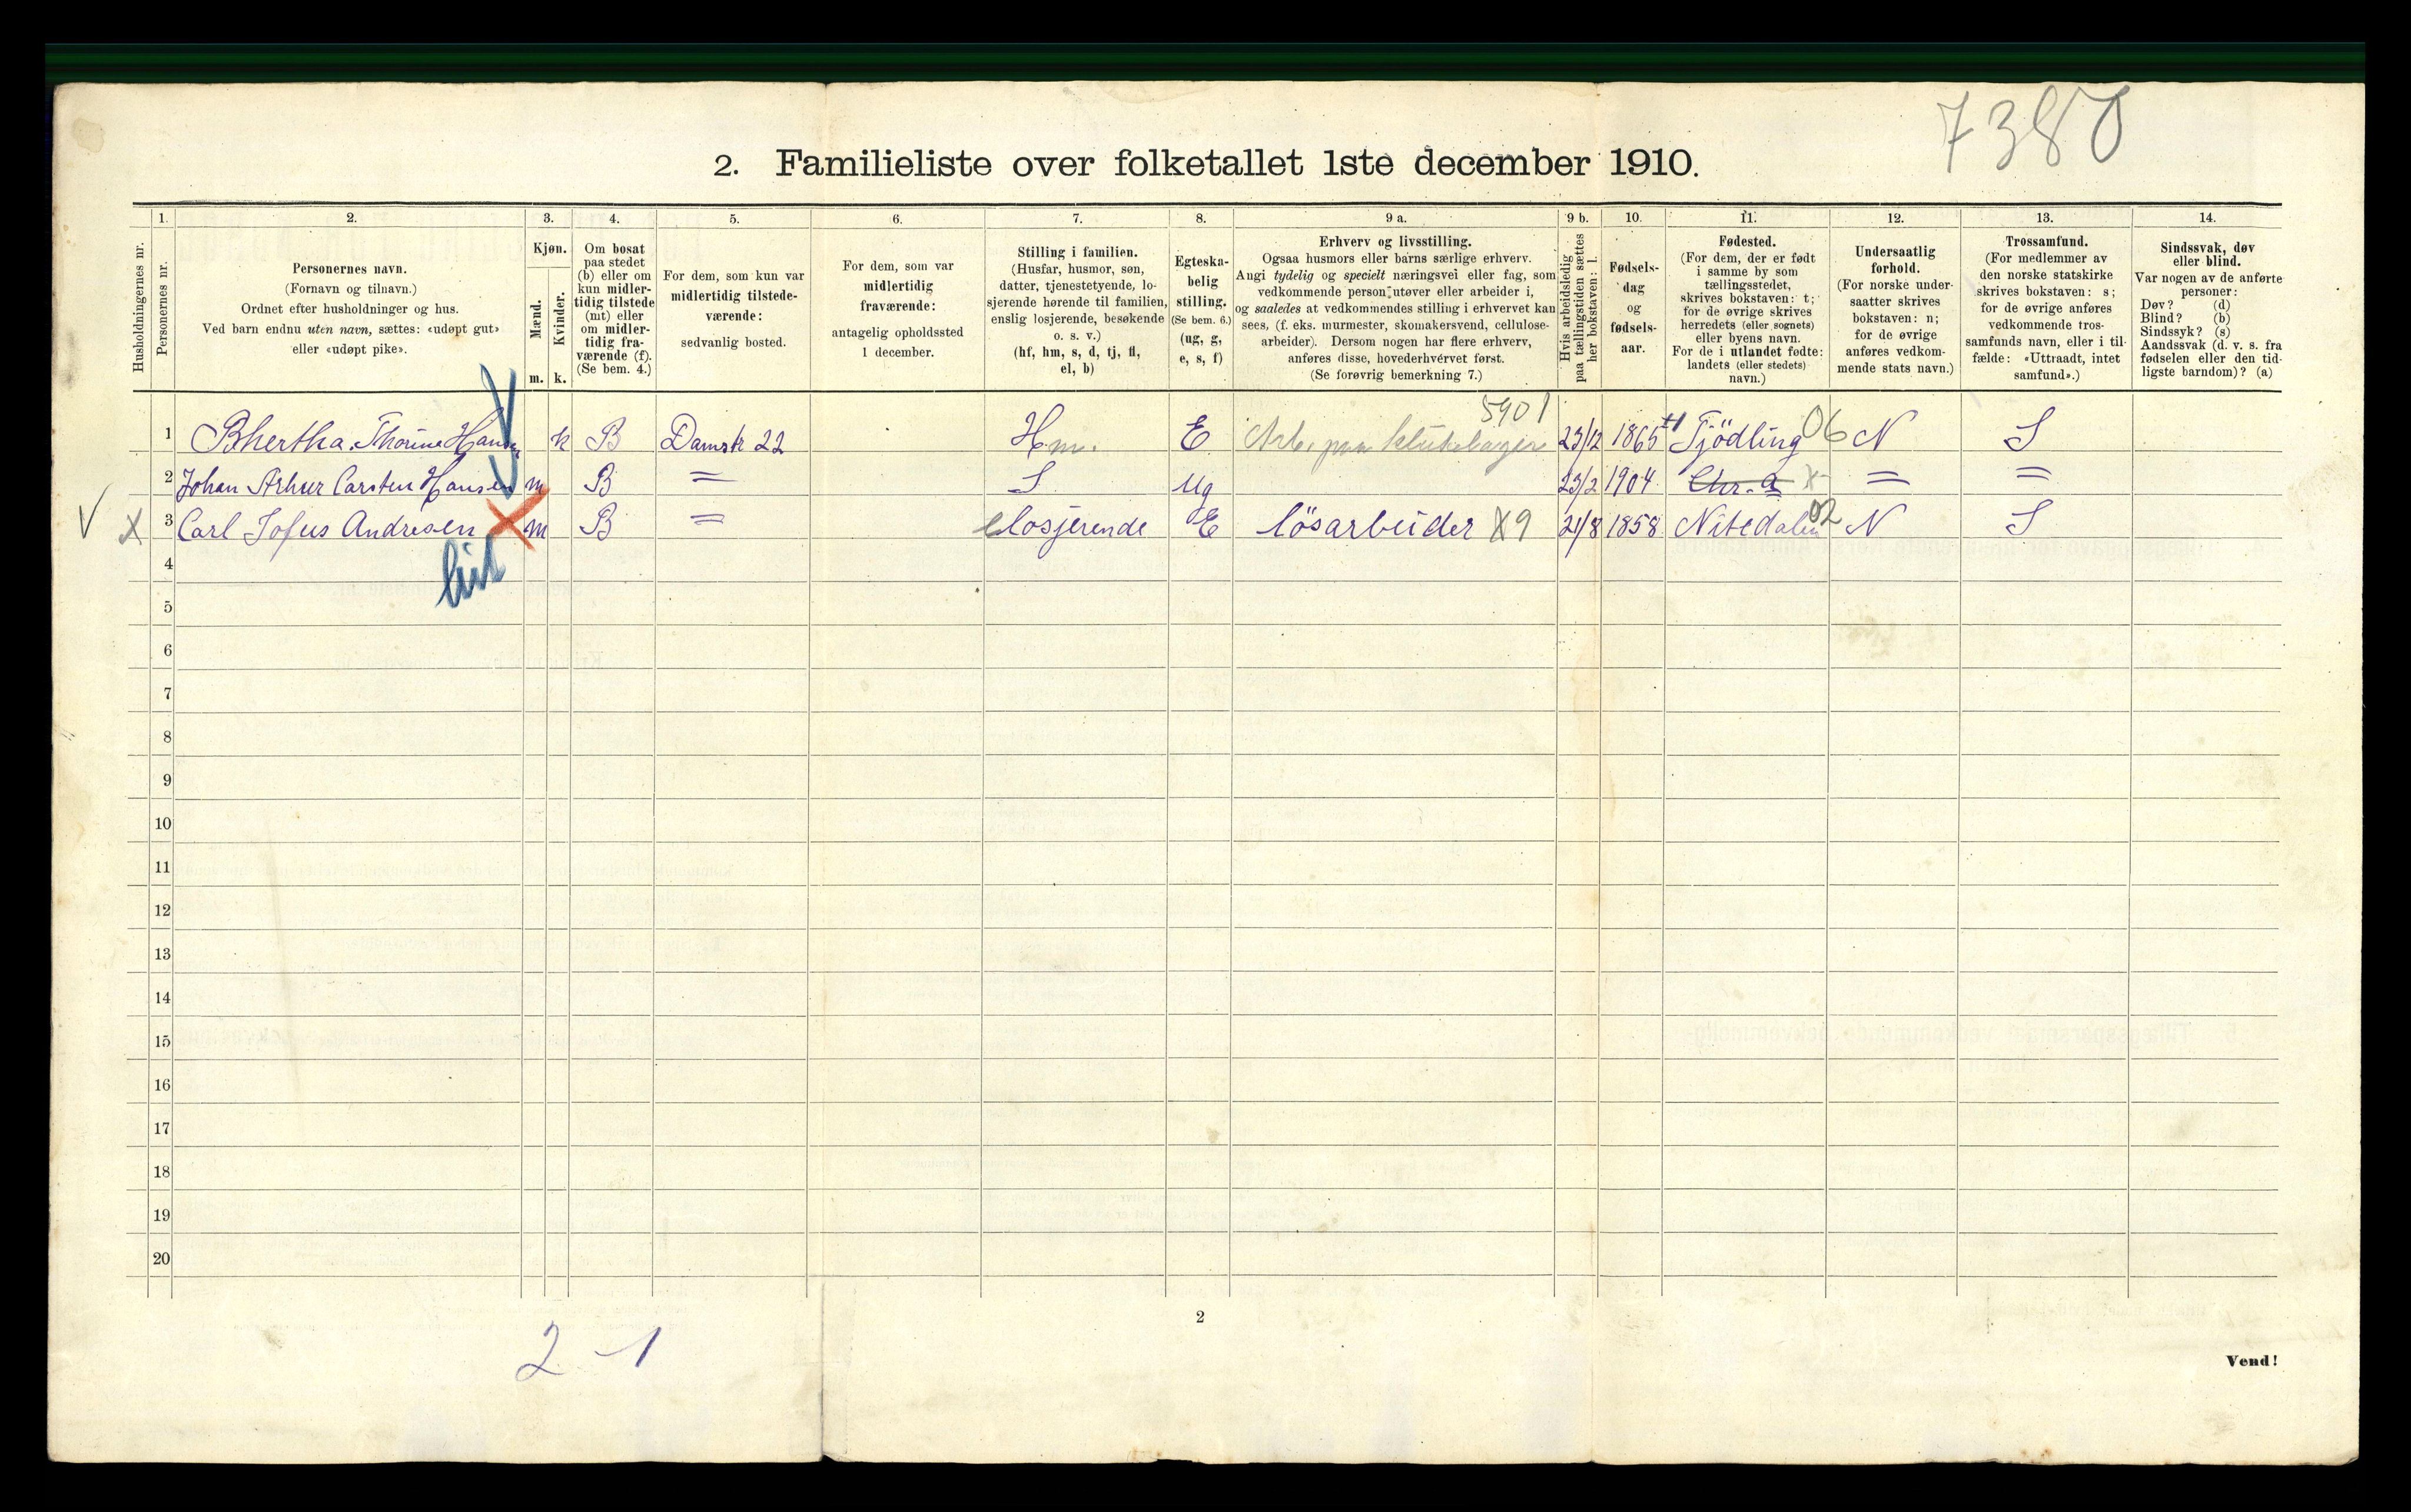 7380
2. Familieliste over folketallet 1ste december 1910.
1. 2. 3. 4. 5. 6. 7. 8. 9 a. 9 b. 10. 11. 12. 13. 14.
Husholdningernes nr.
Personernes nr.
Personernes navn.
(Fornavn og tilnavn.)
Ordnet efter husholdninger og hus.
Ved barn endnu uten navn, sættes: «udøpt gut»
eller «udøpt pike».
Kjøn.
Mænd.
Kvinder.
m. k.
Om bosat
paa stedet
(b) eller om
kun midler-
tidig tilstede
(mt) eller
om midler-
tidig fra-
værende (f).
(Se bem. 4.)
For dem, som kun var
midlertidig tilstede-
værende:
sedvanlig bosted.
For dem, som var
midlertidig
fraværende:
antagelig opholdssted
1 december.
Stilling i familien.
(Husfar, husmor, søn,
datter, tjenestetyende, lo-
sjerende hørende til familien,
enslig losjerende, besøkende
o. s. v.)
(hf, hm, s, d, tj, fl,
el, b)
Egteska-
belig
stilling.
(Se bem. 6.)
(ug, g,
e, s, f)
Erhverv og livsstilling.
Ogsaa husmors eller barns særlige erhverv.
Angi tydelig og specielt næringsvei eller fag, som
vedkommende person utøver eller arbeider i,
og saaledes at vedkommendes stilling i erhvervet kan
sees, (f. eks. murmester, skomakersvend, cellulose-
arbeider). Dersom nogen har flere erhverv,
anføres disse, hovederhvervet først.
(Se forøvrig bemerkning 7.)
Hvis arbeidsledig
paa tællingstiden sættes
her bokstaven: l.
Fødsels-
dag
og
fødsels-
aar.
Fødested.
(For dem, der er født
i samme by som
tællingsstedet,
skrives bokstaven: t;
for de øvrige skrives
herredets (eller sognets)
eller byens navn.
For de i utlandet fødte:
landets (eller stedets)
navn.)
Undersaatlig
forhold.
(For norske under-
saatter skrives
bokstaven: n;
for de øvrige
anføres vedkom-
mende stats navn.)
Trossamfund.
(For medlemmer av
den norske statskirke
skrives bokstaven: s;
for de øvrige anføres
vedkommende tros-
samfunds navn, eller i til-
fælde: «Uttraadt, intet
samfund».)
Sindssvak, døv
eller blind.
Var nogen av de anførte
personer:
Døv? (d)
Blind? (b)
Sindssyk? (s)
Aandssvak (d. v. s. fra
fødselen eller den tid-
ligste barndom)? (a)
5901
1 Bhertha. Thorine Hansen k B Damstr 22 Hm. E Arb. paa klutelager 23/12 1865 Tjödling 06 N S
2 Johan Arhur Carsten Hansen m B = S Ug 23/2 1904 Chr. a X = =
V X 3 Carl Sofus Andresen X m B = elosjerende E lösarbeider X9 21/8 1858 Nitedalen 02 N S
4
5
6
7
8
9
10
11
12
13
14
15
16
17
18
19
20
2
2-1
Vend!